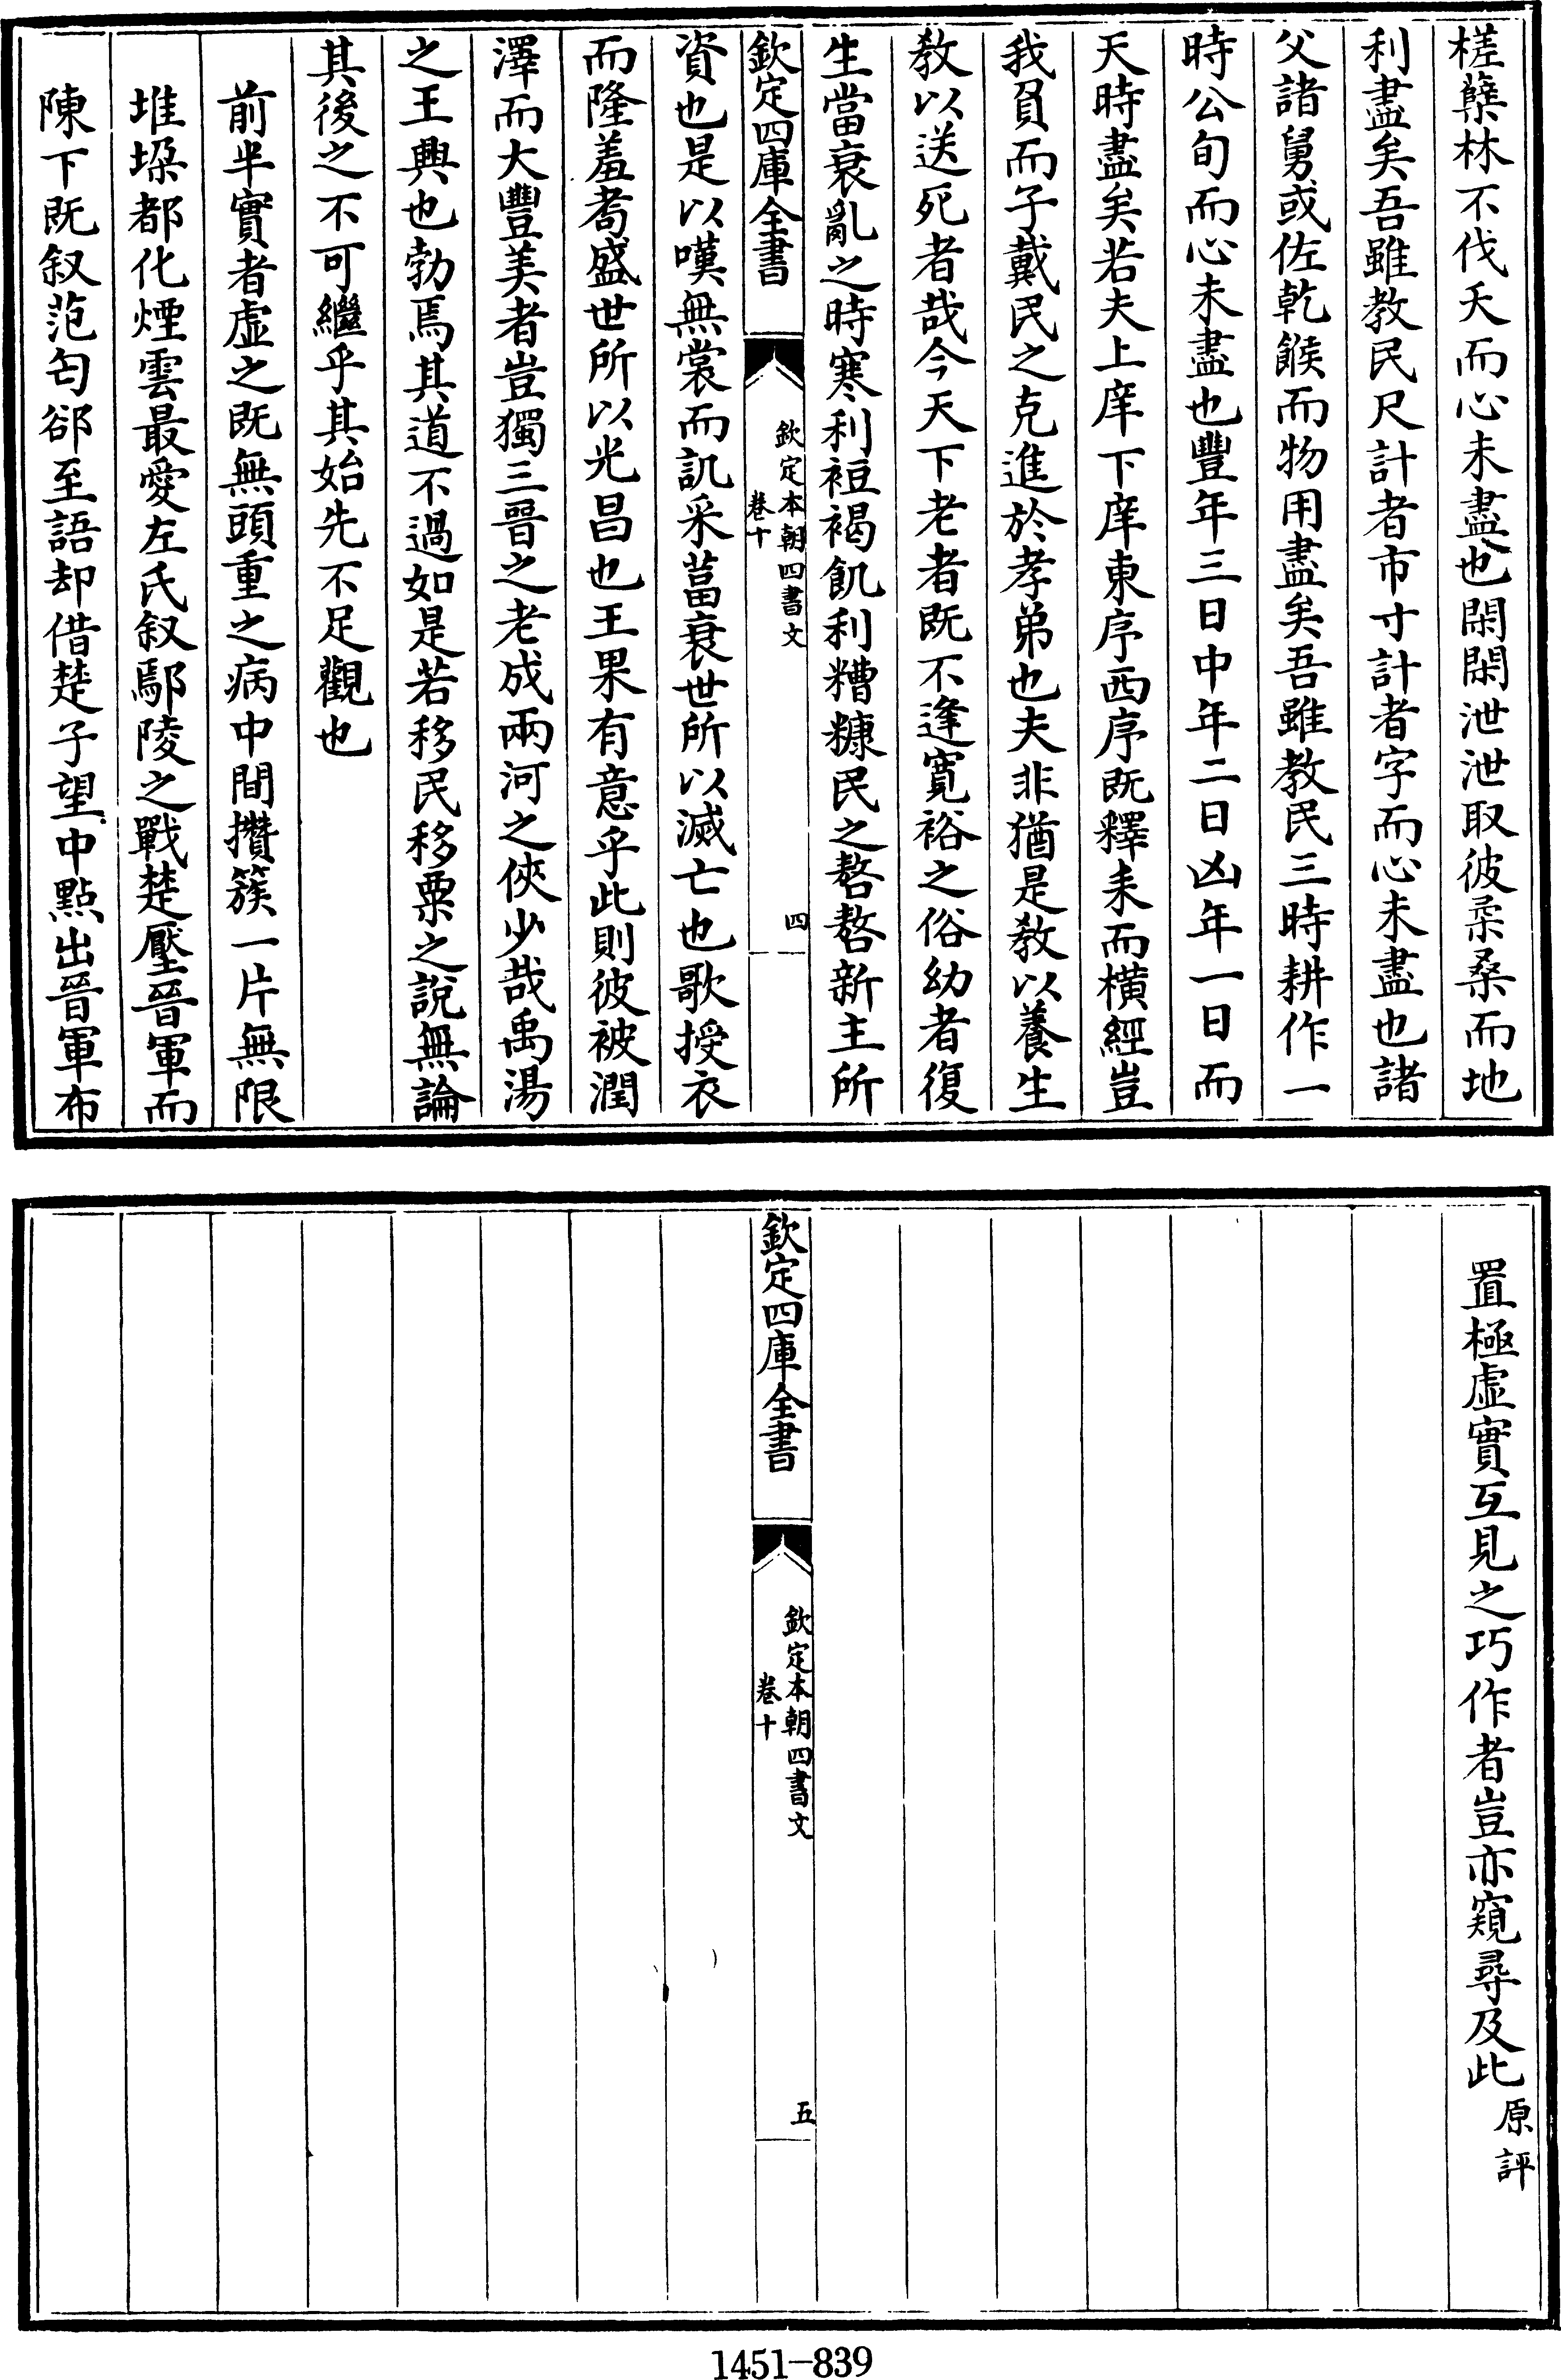 槎櫱林不伐夭而心未盡也閑閑泄泄取彼柔桑而地
利盡矣吾雖教民尺計者市寸計者字而心未盡也諸
父諸舅或佐乾餱而物用盡矣吾雖教民三時耕作一
時公旬而心未盡也豐年三日中年二日凶年一日而
天時盡矣若夫上庠下庠東序西序既釋耒而横經豈
我負而子戴民之克進於孝弟也夫非猶是教以養生
教以送死者哉今天下老者既不逢寛裕之俗幼者復
生當衰亂之時寒利裋褐飢利糟糠民之嗸嗸新主所
欽定四庫全書
欽定本朝四書文
卷十
四
資也是以嘆無裳而訊采葍衰世所以滅亡也歌授衣
而隆羞耉盛世所以光昌也王果有意乎此則彼被潤
澤而大豐美者豈獨三晉之老成兩河之俠少哉禹湯
之王興也勃焉其道不過如是若移民移粟之說無論
其後之不可繼乎其始先不足觀也
前半實者虛之既無頭重之病中間攢簇一片無限
堆垜都化煙雲最愛左氏叙鄢陵之戰楚壓晉軍而
陳下既叙范匄郤至語却借楚子望中點出晉軍布
置極虛實互見之巧作者豈亦窺尋及此
原評
欽定四庫全書
欽定本朝四書文
卷十
五
1451-839